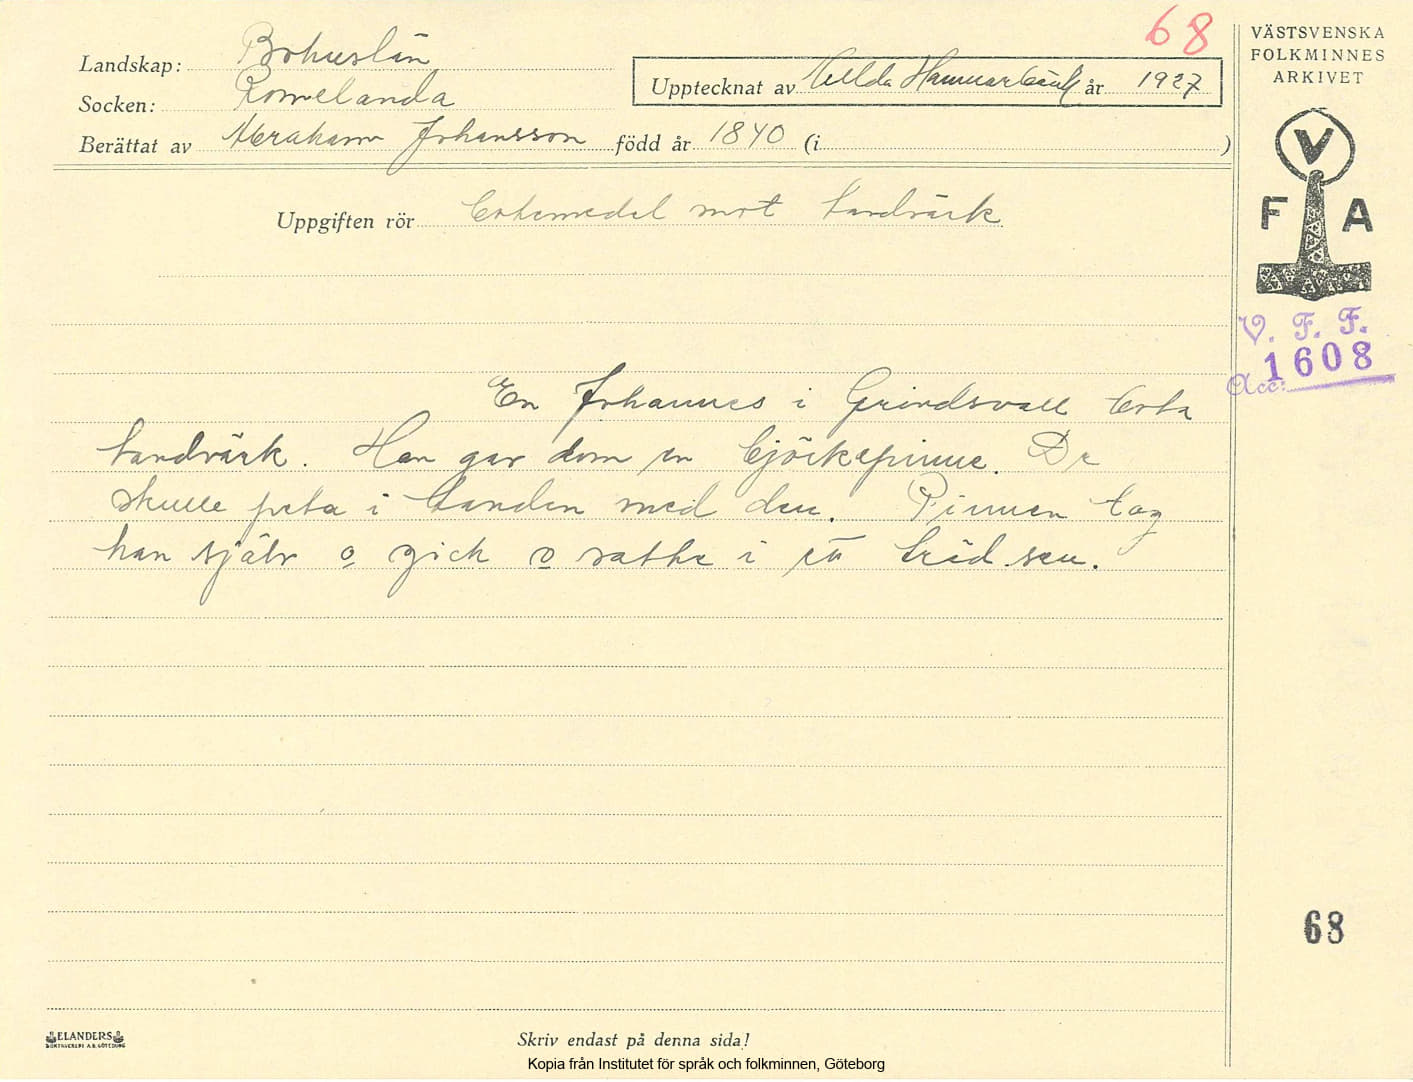 68
VÄSTSVENSKA
FOLKMINNES
ARKIVET
Landskap: Bohuslän
Socken: Romelanda
Upptecknat av Hilda Hammarbäck år 1927
Berättat av Abraham Johansson född år 1840 (i )
V
F A
Uppgiften rör Botemedel mot tandvärk
V. F. F.
Acc: 1608
En Johannes i Grindsvall bota
tandvärk. Han gav dom en björkepinne. De
skulle peta i tanden med den. Pinnen tog
han själv o gick o satte i ett träd sen.
68
ELANDERS
BOKTRYCKERI A.B. GÖTEBORG
Skriv endast på denna sida!
Kopia från Institutet för språk och folkminnen, Göteborg